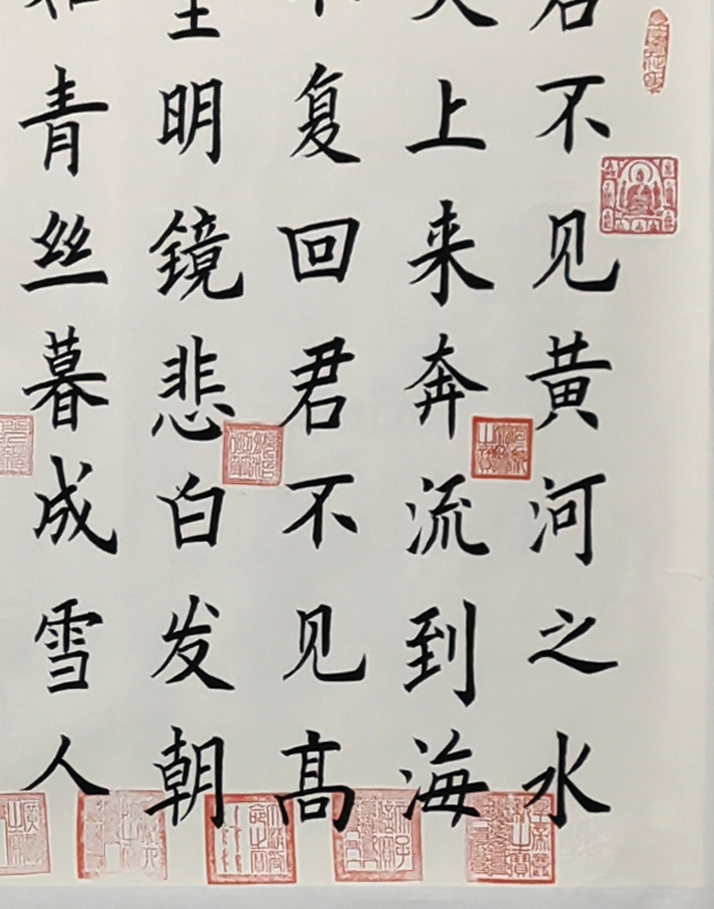 君不见黄河之水
天上来奔流到海
不复回君不见高
堂明镜悲白发朝
如青丝暮成雪人